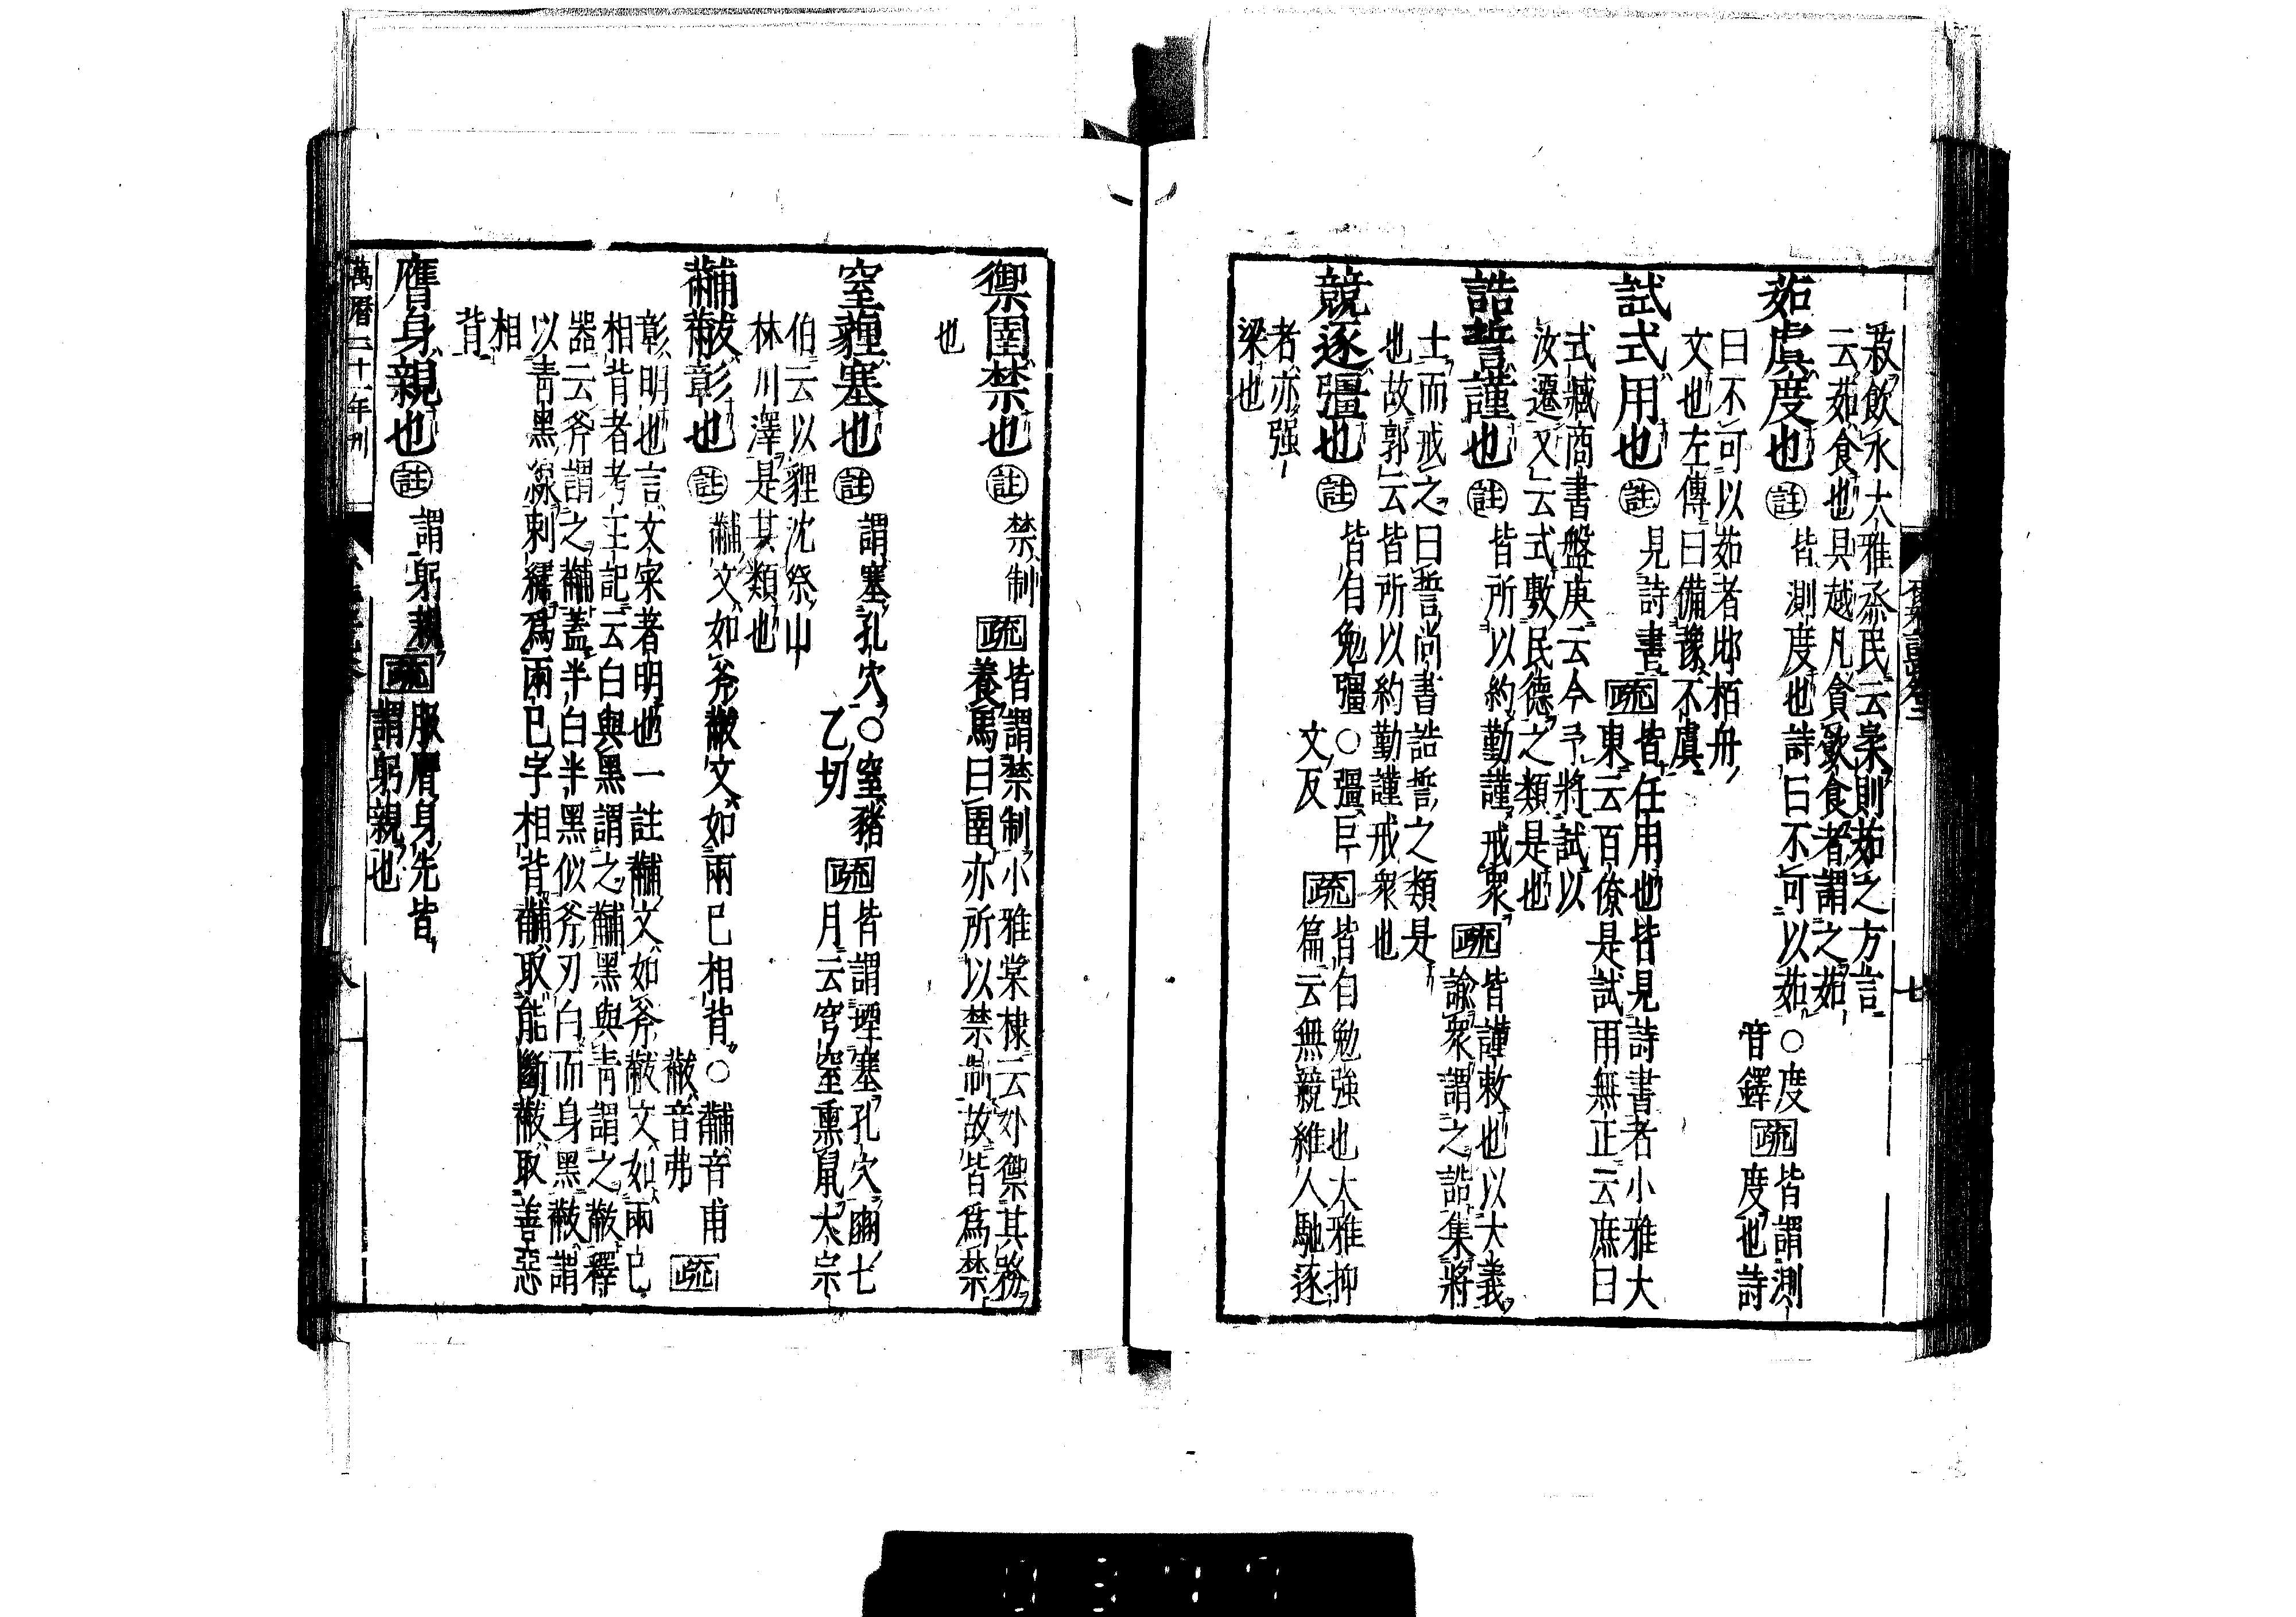 菽飲水大雅烝民云柔則茹之方言
云茹食也具越凡貪飲食者謂之茹
茹虞度也 註 皆測度也詩曰不可以茹 ○度音鐸 疏 皆謂測度也詩
曰不可以茹者邶栢舟
文也左傳曰備豫不虞
試式用也 註 見詩書 疏 皆任用也皆見詩書者小雅大東云百僚是試雨無正云庶曰
式臧商書盤庚云今予將試以
汝遷又云式敷民德之類是也
誥誓謹也 註 皆所以約勤謹戒衆 疏 皆謹敕也以大義諭衆謂之誥集將
士而戒之曰誓尚書誥誓之類是
也故郭云皆所以約勤謹戒衆也
競逐彊也 註 皆自勉彊 ○彊巨文反 疏 皆自勉強也大雅抑篇云無競維人馳逐
者亦强
梁也
禦圉禁也 註 禁制 疏 皆謂禁制小雅棠棣云外禦其務養馬曰圉亦所以禁制故皆爲禁
也
窒薶塞也 註 謂塞孔穴 ○窒豬乙切 疏 皆謂堙塞孔穴豳七月云穹窒熏鼠大宗
伯云以貍沈祭山
林川澤是其類也
黼黻彰也 註 黼文如斧黻文如兩已相背 ○黼音甫黻音弗 疏
彰明也言文宷著明也一註黼文如斧黻文如兩已
相背者考工記云白與黑謂之黼黑與青謂之黻釋
器云斧謂之黼蓋半白半黑似斧刃白而身黑黻謂
以青黑線刺繡爲兩已字相背黼取能斷黻取善惡
相
背
膺身親也 註 謂躬親 疏 服膺身先皆謂躬親也
萬曆二十一年刊